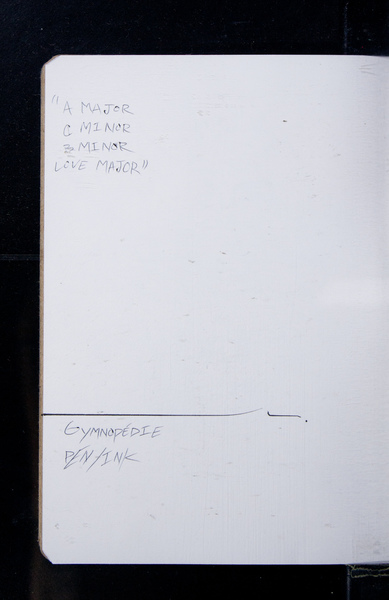 "A MAJOR
C MINOR
3 MINOR
LOVE MAJOR"
GYMNOPÉDIE
PEN/INK